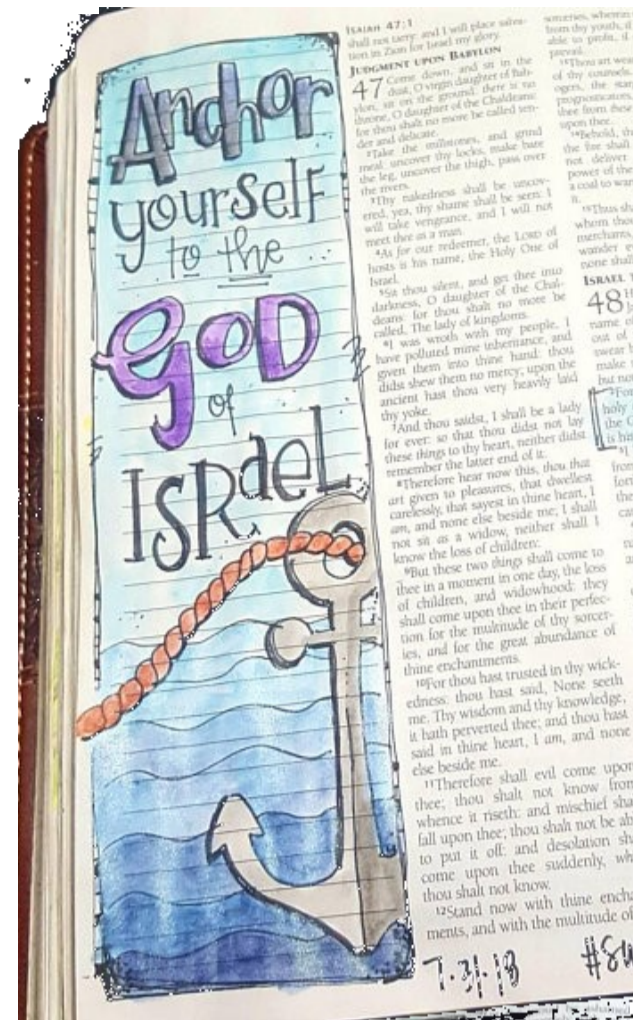 Anchor
yourself
to the
GOD
of
ISRaeL
ISAIAH 47:1
shall not tarry: and I will place salva-
tion in Zion for Israel my glory.
JUDGMENT UPON BABYLON
47 Come down, and sit in the
dust, O virgin daughter of Bab-
ylon, sit on the ground: there is no
throne, O daughter of the Chaldeans:
for thou shalt no more be called ten-
der and delicate.
2Take the millstones, and grind
meal: uncover thy locks, make bare
the leg, uncover the thigh, pass over
the rivers.
3Thy nakedness shall be uncov-
ered, yea, thy shame shall be seen: I
will take vengeance, and I will not
meet thee as a man.
4As for our redeemer, the LORD of
hosts is his name, the Holy One of
Israel.
5Sit thou silent, and get thee into
darkness, O daughter of the Chal-
deans: for thou shalt no more be
called, The lady of kingdoms.
6I was wroth with my people, I
have polluted mine inheritance, and
given them into thine hand: thou
didst shew them no mercy; upon the
ancient hast thou very heavily laid
thy yoke.
7And thou saidst, I shall be a lady
for ever: so that thou didst not lay
these things to thy heart, neither didst
remember the latter end of it.
8Therefore hear now this, thou that
art given to pleasures, that dwellest
carelessly, that sayest in thine heart, I
am, and none else beside me; I shall
not sit as a widow, neither shall I
know the loss of children:
9But these two things shall come to
thee in a moment in one day, the loss
of children, and widowhood: they
shall come upon thee in their perfec-
tion for the multitude of thy sorcer-
ies, and for the great abundance of
thine enchantments.
10For thou hast trusted in thy wick-
edness: thou hast said, None seeth
me. Thy wisdom and thy knowledge,
it hath perverted thee; and thou hast
said in thine heart, I am, and none
else beside me.
11Therefore shall evil come upon
thee; thou shalt not know from
whence it riseth: and mischief sha
fall upon thee; thou shalt not be ab
to put it off: and desolation sh
come upon thee suddenly, wh
thou shalt not know.
12Stand now with thine encha
ments, and with the multitude of
7·31·18
sorceries, wherein
from thy youth; if
able to profit, if
prevail.
13Thou art wea
of thy counsels.
ogers, the star
prognosticators,
thee from these
upon thee.
14Behold, th
the fire shall
not deliver
power of the
a coal to war
it.
15Thus sh
whom tho
merchants,
wander e
none shall
ISRAEL
48
name o
out of
swear b
make
but no
2For
holy
the G
is hi